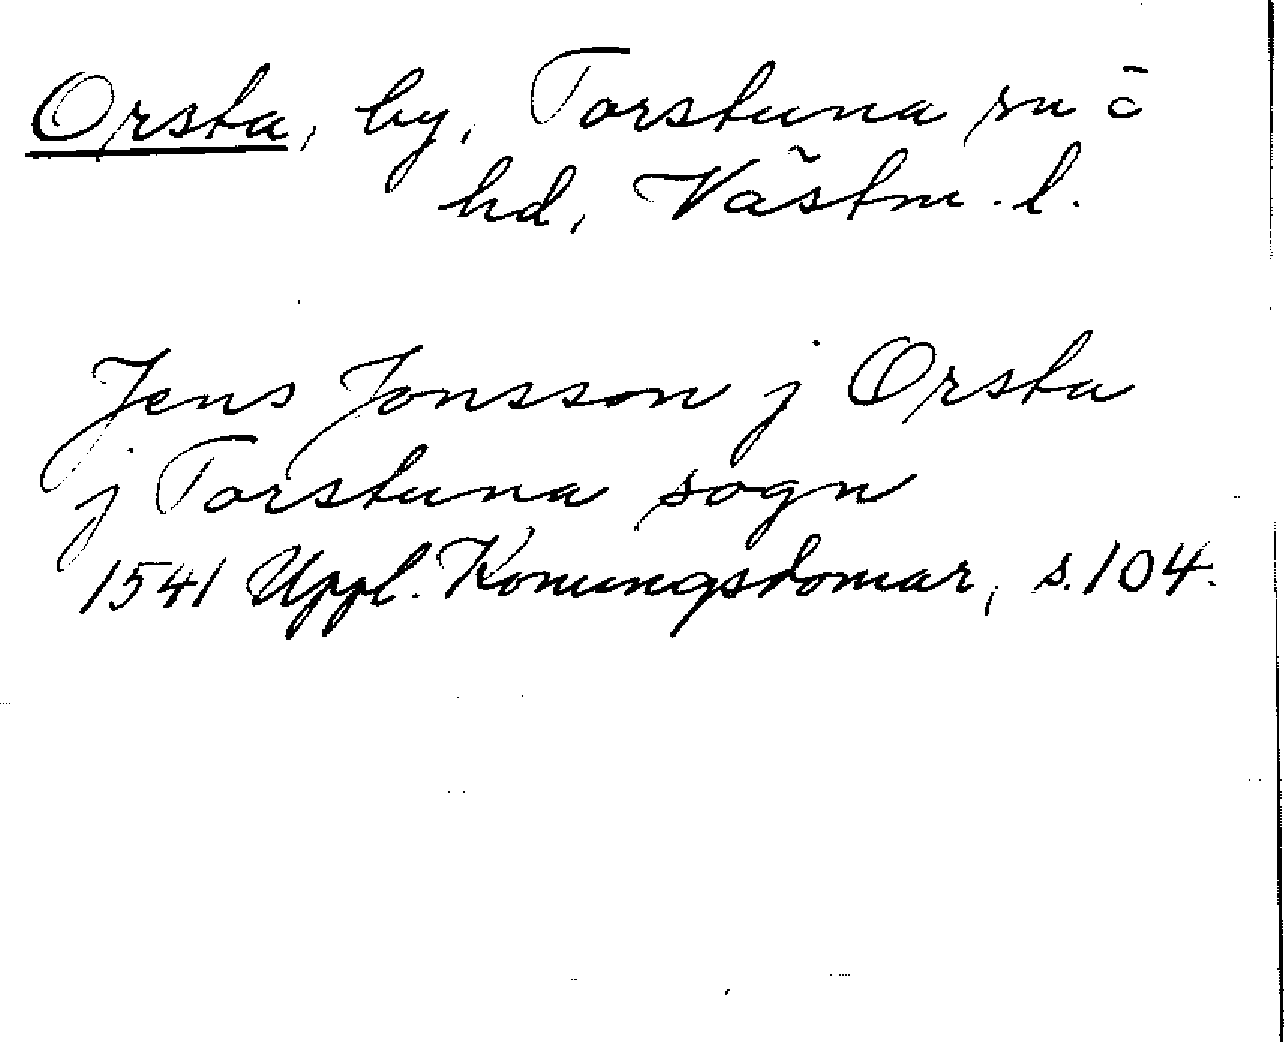 Orsta, by, Torstuna sn o
hd, Västm. l.
Jens Jonsson j Orsta
j Torstuna sogn
1541 Uppl. Konungsdomar, s. 104.